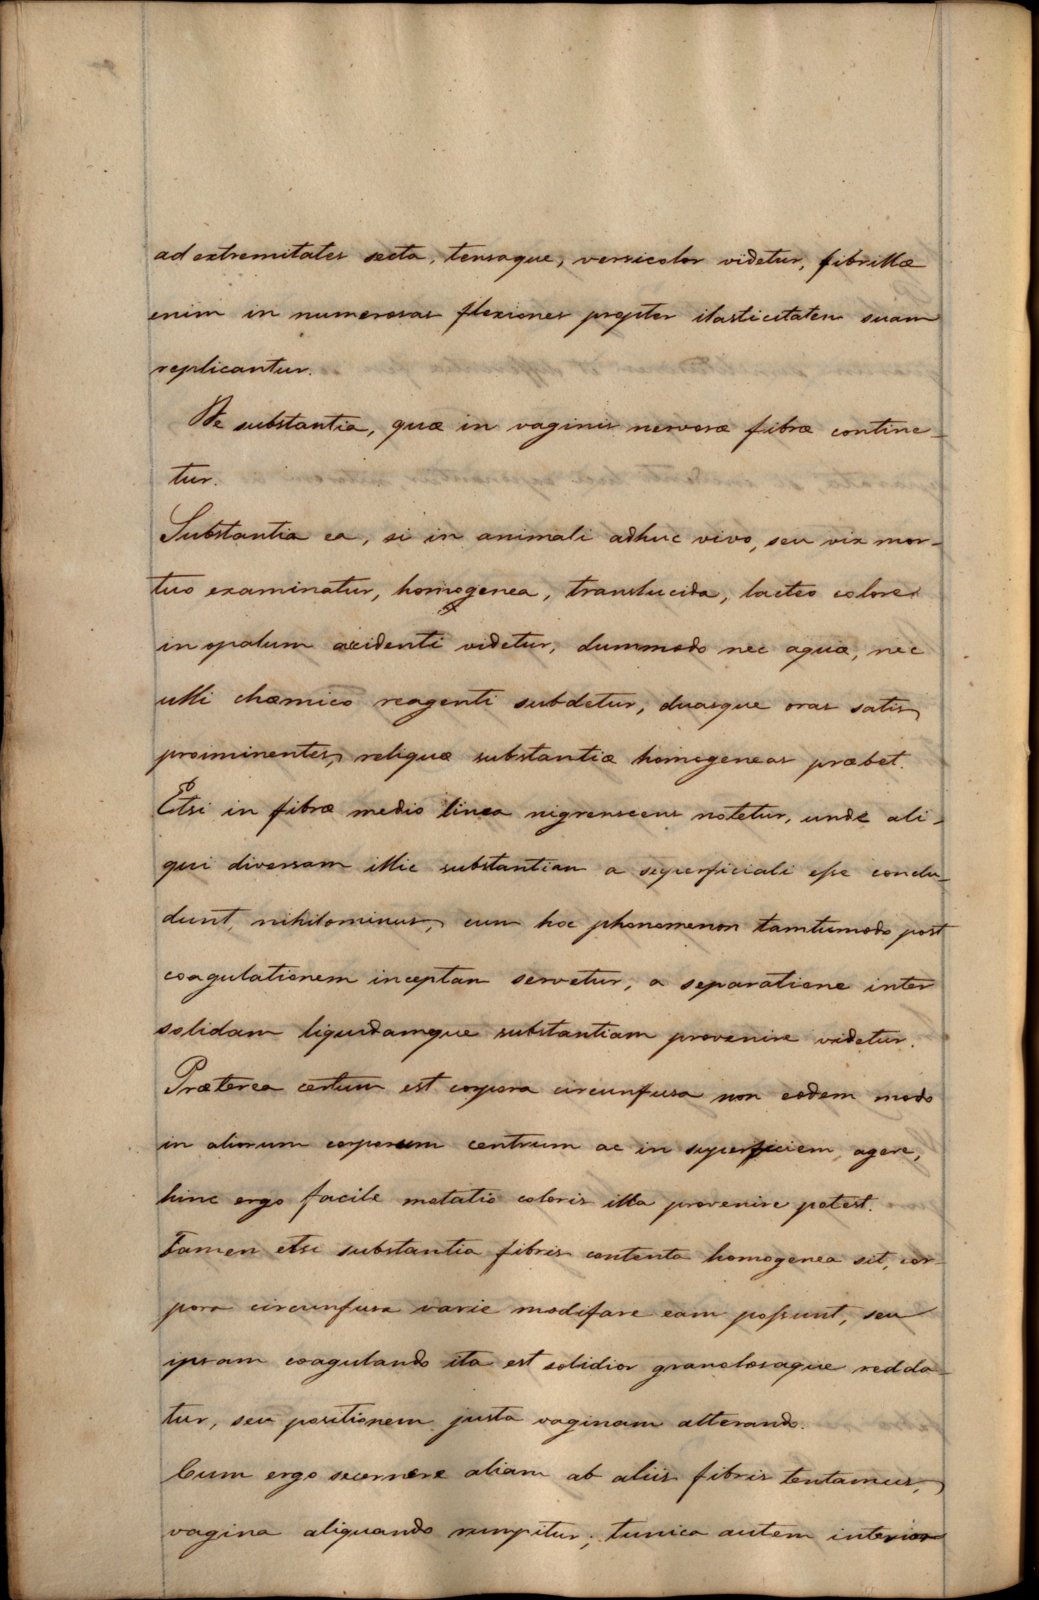 ad extremitates secta, tensaque, versicolor videtur, fibrillæ
enim in numerosas flexiones propter ilasticitatem suam
replicantur.
De substantia, quæ in vaginis nervosæ fibræ contine-
tur.
Substantia ea, si in animali adhuc vivo, seu vix mor-
tuo examinatur, homogenea, translucida, lacteo colore
in opalum accidenti videtur, dummodo nec aquæ, nec
ulli chœmico reagenti subdetur, duasque oras satis
prominentes, reliquæ substantiæ homogeneas præbet.
Etsi in fibræ medio linea nigrenscens notetur, unde ali-
qui diversam illic substantiam a superficiali esse conclu-
dunt, nihilominus, cum hoc phonomenon tamtumodo post
coagulationem inceptam servetur, a separatione inter
solidam liquidamque substantiam provenire videtur.
Præterea certum est corpora circunfusa non eodem modo
in aliorum corporum centrum ac in superficiem, agere,
hinc ergo facile motatio coloris illa provenire potest.
Tamen etsi substantia fibris contenta homogenea sit, cor-
pora circunfusa varie modifare eam possunt, seu
ipsam coagulando ita est solidior granolosaque redda-
tur, seu positionem justa vaginam alterando.
Cum ergo secernere aliam ab aliis fibris tentamus,
vagina aliquando rumpitur, tunica autem interior